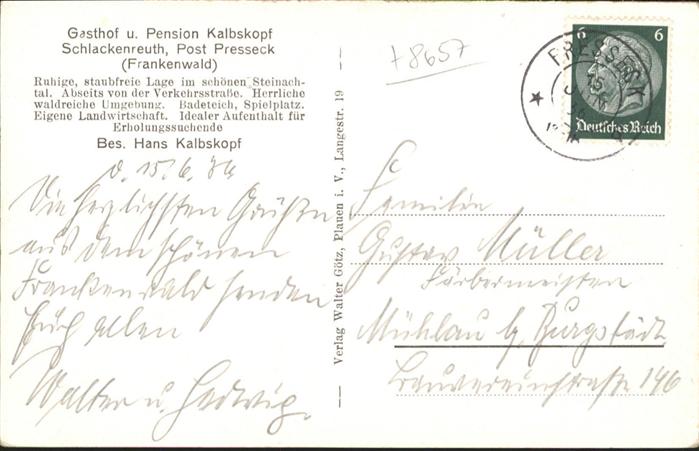 Gasthof u. Pension Kalbskopf
Schlackenreuth, Post Presseck
(Frankenwald)
Ruhige, staubfreie Lage im schönen Steinach-
tal. Abseits von der Verkehrsstraße. Herrliche
waldreiche Umgebung. Badeteich, Spielplatz.
Eigene Landwirtschaft. Idealer Aufenthalt für
Erholungssuchende
Bes. Hans Kalbskopf
d. 15./6. 36
Die herzlichsten Grüße
aus dem schönen
Frankenwald senden
Euch allen
Walter u. Hedwig.
Verlag Walter Götz, Plauen i. V., Langestr. 19
+8657
6 6
Deutsches Reich
PRESSECK
Familie
Gustav Müller
Färbermeister
Mühlau b. Burgstädt
146